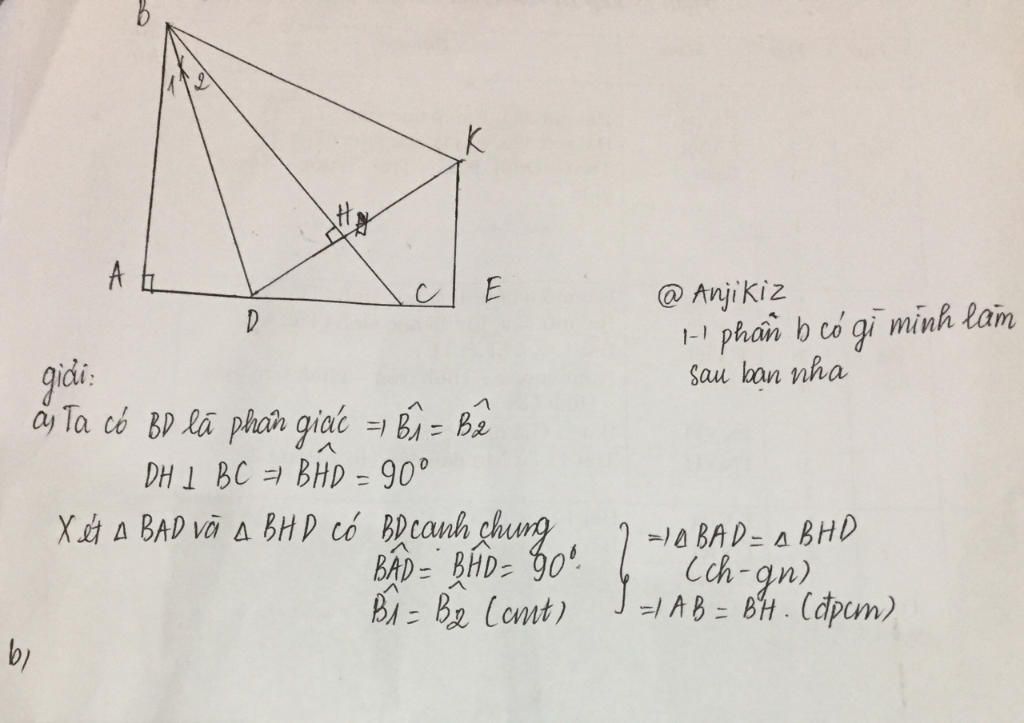 B
1 2
K
H
A
D
C
E
@ Anjikiz
1-1 phần b có gì mình làm
sau bạn nha
giải:
a, Ta có BD là phân giác =) B̂1 = B̂2
DH ⊥ BC =) BĤD = 90°
Xét Δ BAD và Δ BHD có BD cạnh chung
BÂD = BĤD = 90°.
B̂1 = B̂2 (cmt)
=) Δ BAD = Δ BHD
(ch-gn)
=) AB = BH. (đpcm)
b,